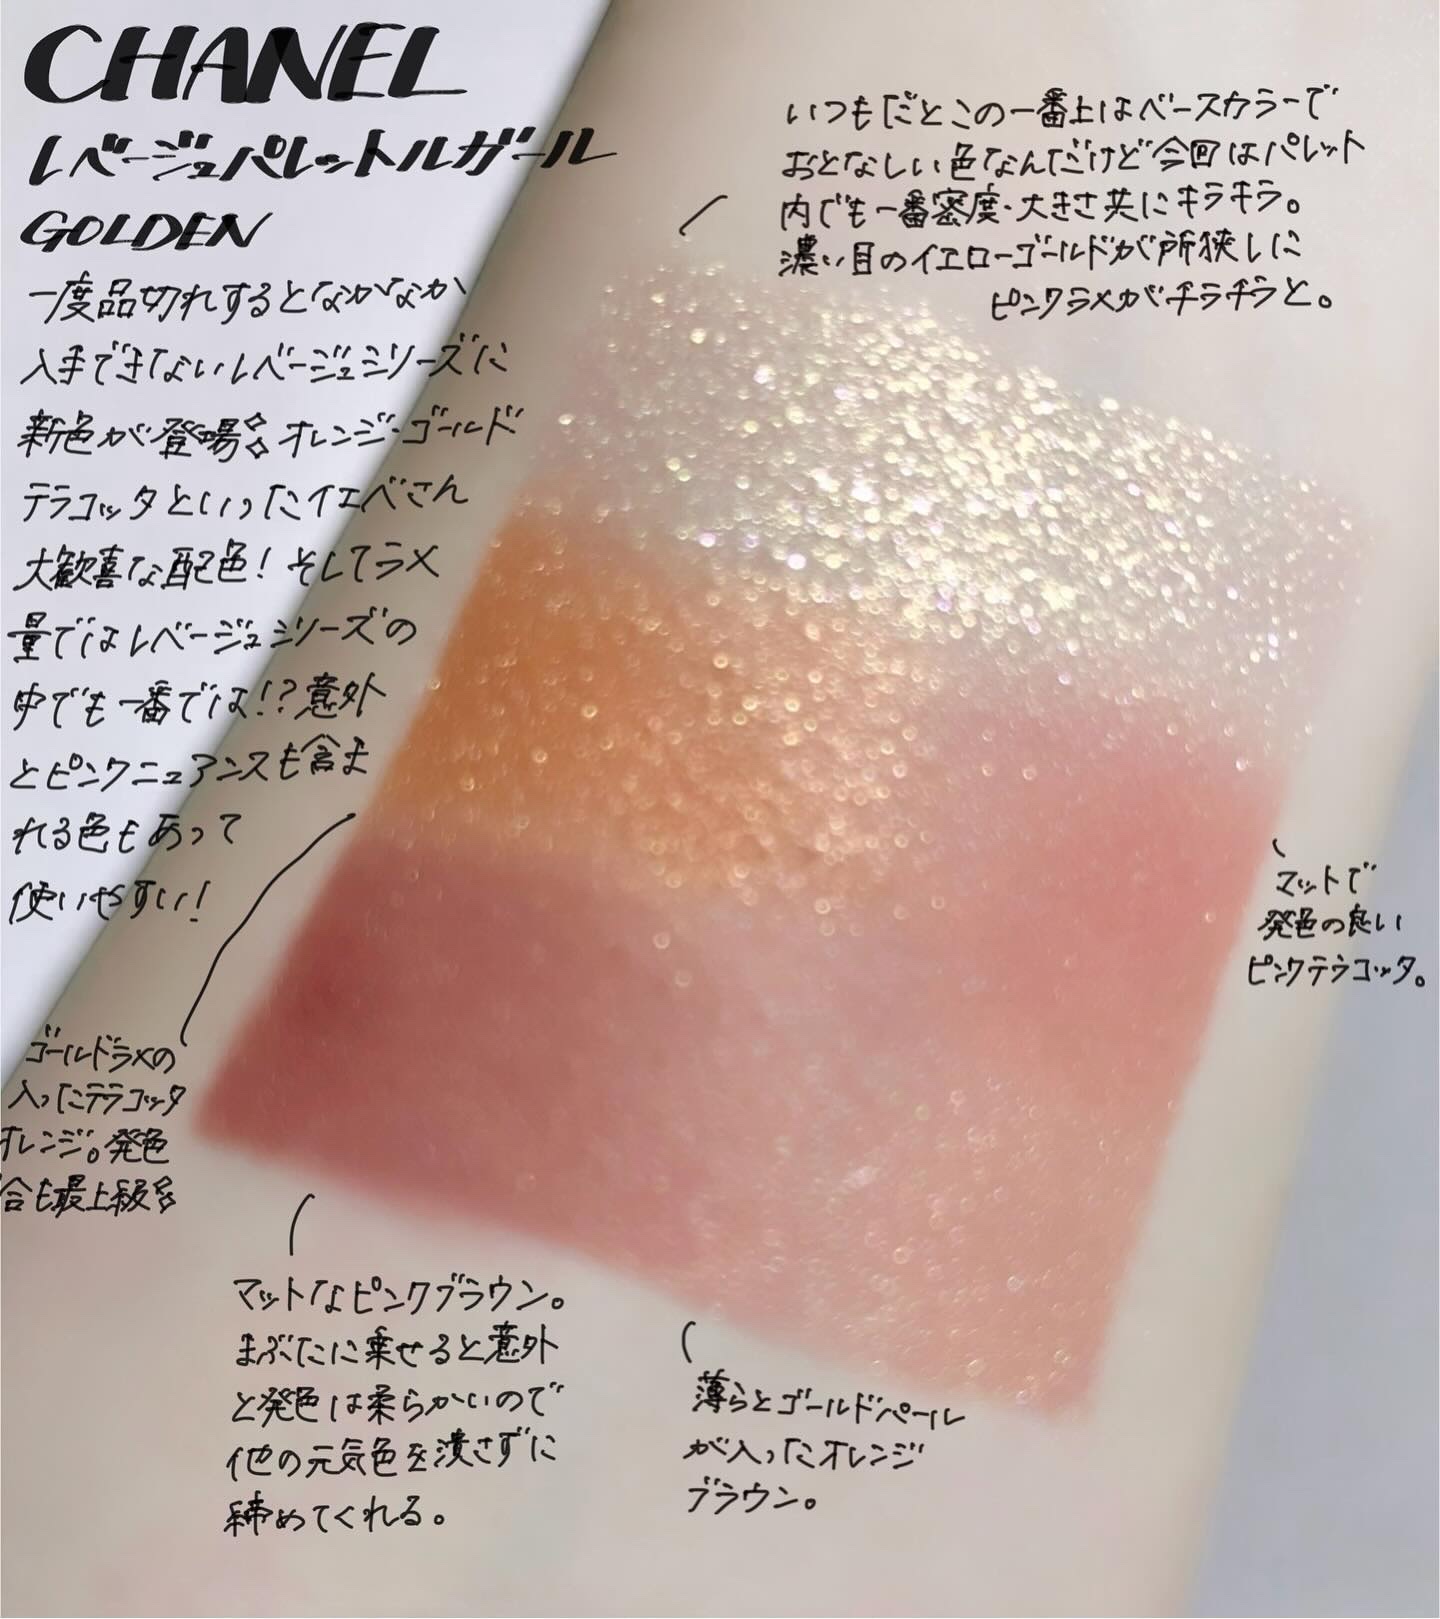 CHANEL
レベージュパレットルガール
GOLDEN
一度品切れするとなかなか
入手できないレベージュシリーズに
新色が登場✨オレンジ・ゴールド
テラコッタといったイエベさん
大歓喜な配色！そしてラメ
量ではレベージュシリーズの
中でも一番では！？意外
とピンクニュアンスも含ま
れる色もあって
使いやすい！
いつもだとこの一番上はベースカラーで
おとなしい色なんだけど今回はパレット
内でも一番密度・大きさ共にキラキラ。
濃い目のイエローゴールドが所狭しに
ピンクラメがチラチラと。
マットで
発色の良い
ピンクテラコッタ。
ゴールドラメの
入ったテラコッタ
オレンジ。発色
合も最上級✨
マットなピンクブラウン。
まぶたに乗せると意外
と発色は柔らかいので
他の元気色を潰さずに
締めてくれる。
薄らとゴールドパール
が入ったオレンジ
ブラウン。